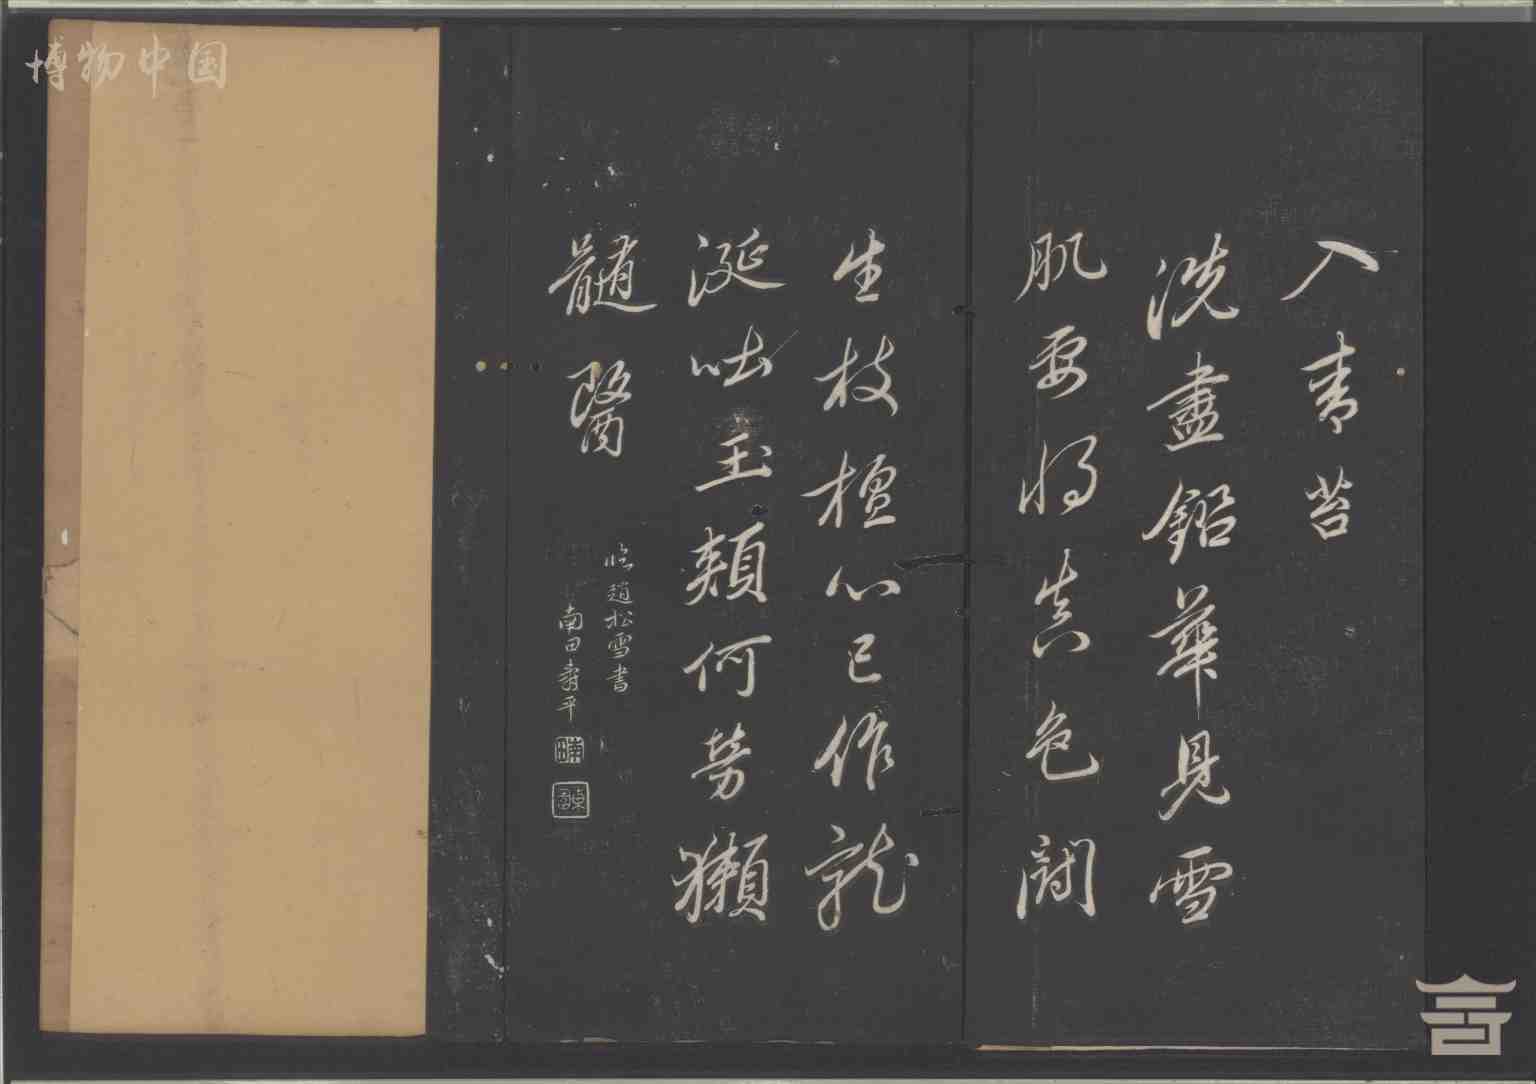 入青苔
洗盡鉛華見雪
肌要將真色鬭
生枝檀心已作龍
涎吐玉頰何勞獺
髓醫
臨趙松雪書
南田壽平
博物中国